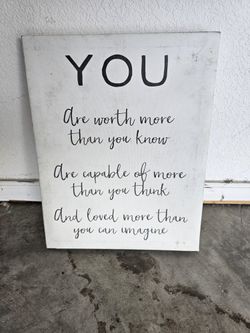 YOU
Are worth more
than you know
Are capable of more
than you think
And loved more than
you can imagine